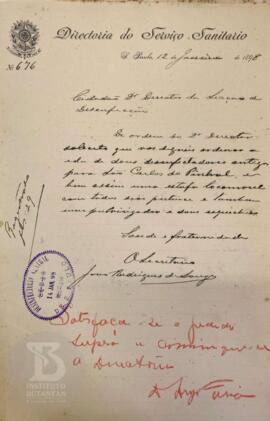 Directoria do Serviço Sanitario
S. Paulo 12 de Janeiro de 1898
Nº 676
Cidadão Dr Director do Serviço de
Desinfecção
De ordem do Dr Director
solicito que vos digneis ordenar a
ida de dous desinfectadores antigos
para São Carlos do Pinhal e
bem assim uma estufa locomovel
com todos seus pertences e tambem
um pulverizador e dous
Saude e fraternidade
O Secretario
João Rodrigues de
14 JAN 98
Satisfaça-se o pedido
supra e
a Directoria
Dr
INSTITUTO
BUTANTAN